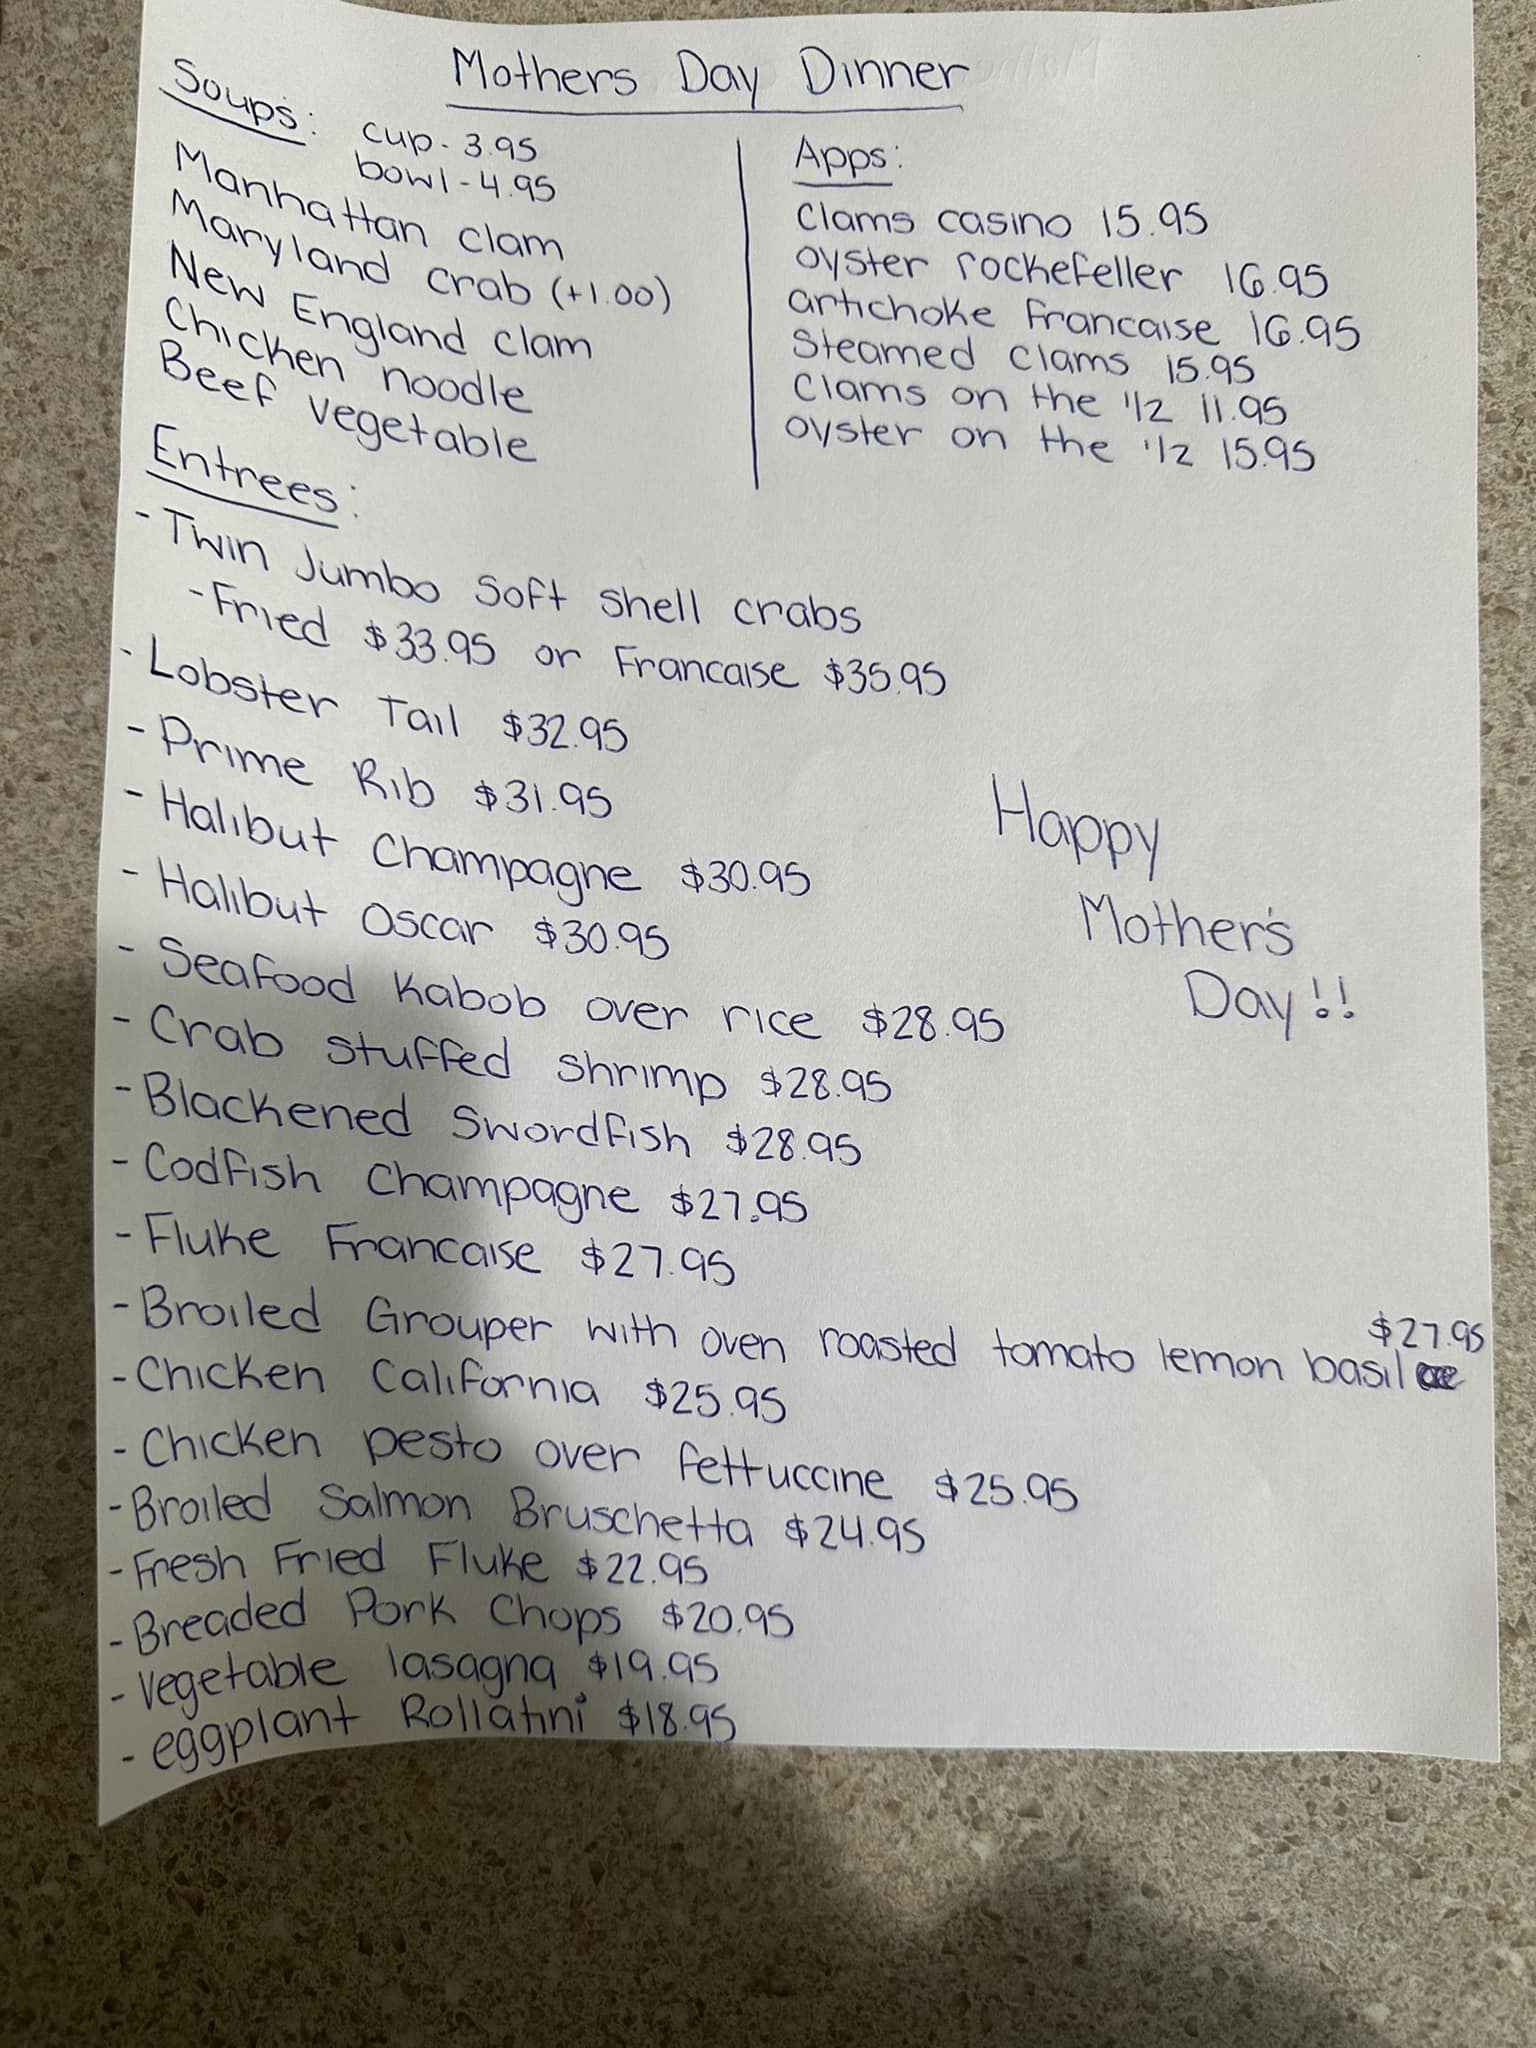 Mothers Day Dinner
Soups:
cup - 3.95
bowl - 4.95
Manhattan clam
Maryland crab (+1.00)
New England clam
Chicken noodle
Beef vegetable
Apps:
Clams casino 15.95
oyster rockefeller 16.95
artichoke Francaise 16.95
Steamed clams 15.95
Clams on the 1/2 11.95
oyster on the 1/2 15.95
Entrees:
- Twin Jumbo Soft Shell crabs
- Fried $33.95 or Francaise $35.95
- Lobster Tail $32.95
- Prime Rib $31.95
- Halibut Champagne $30.95
- Halibut Oscar $30.95
- Seafood Kabob over rice $28.95
- Crab stuffed shrimp $28.95
- Blackened Swordfish $28.95
- Codfish Champagne $27.95
- Fluke Francaise $27.95
- Broiled Grouper with oven roasted tomato lemon basil $27.95
- Chicken California $25.95
- Chicken pesto over fettuccine $25.95
- Broiled Salmon Bruschetta $24.95
- Fresh Fried Fluke $22.95
- Breaded Pork Chops $20.95
- Vegetable lasagna $19.95
- eggplant Rollatini $18.95
Happy
Mother's
Day!!